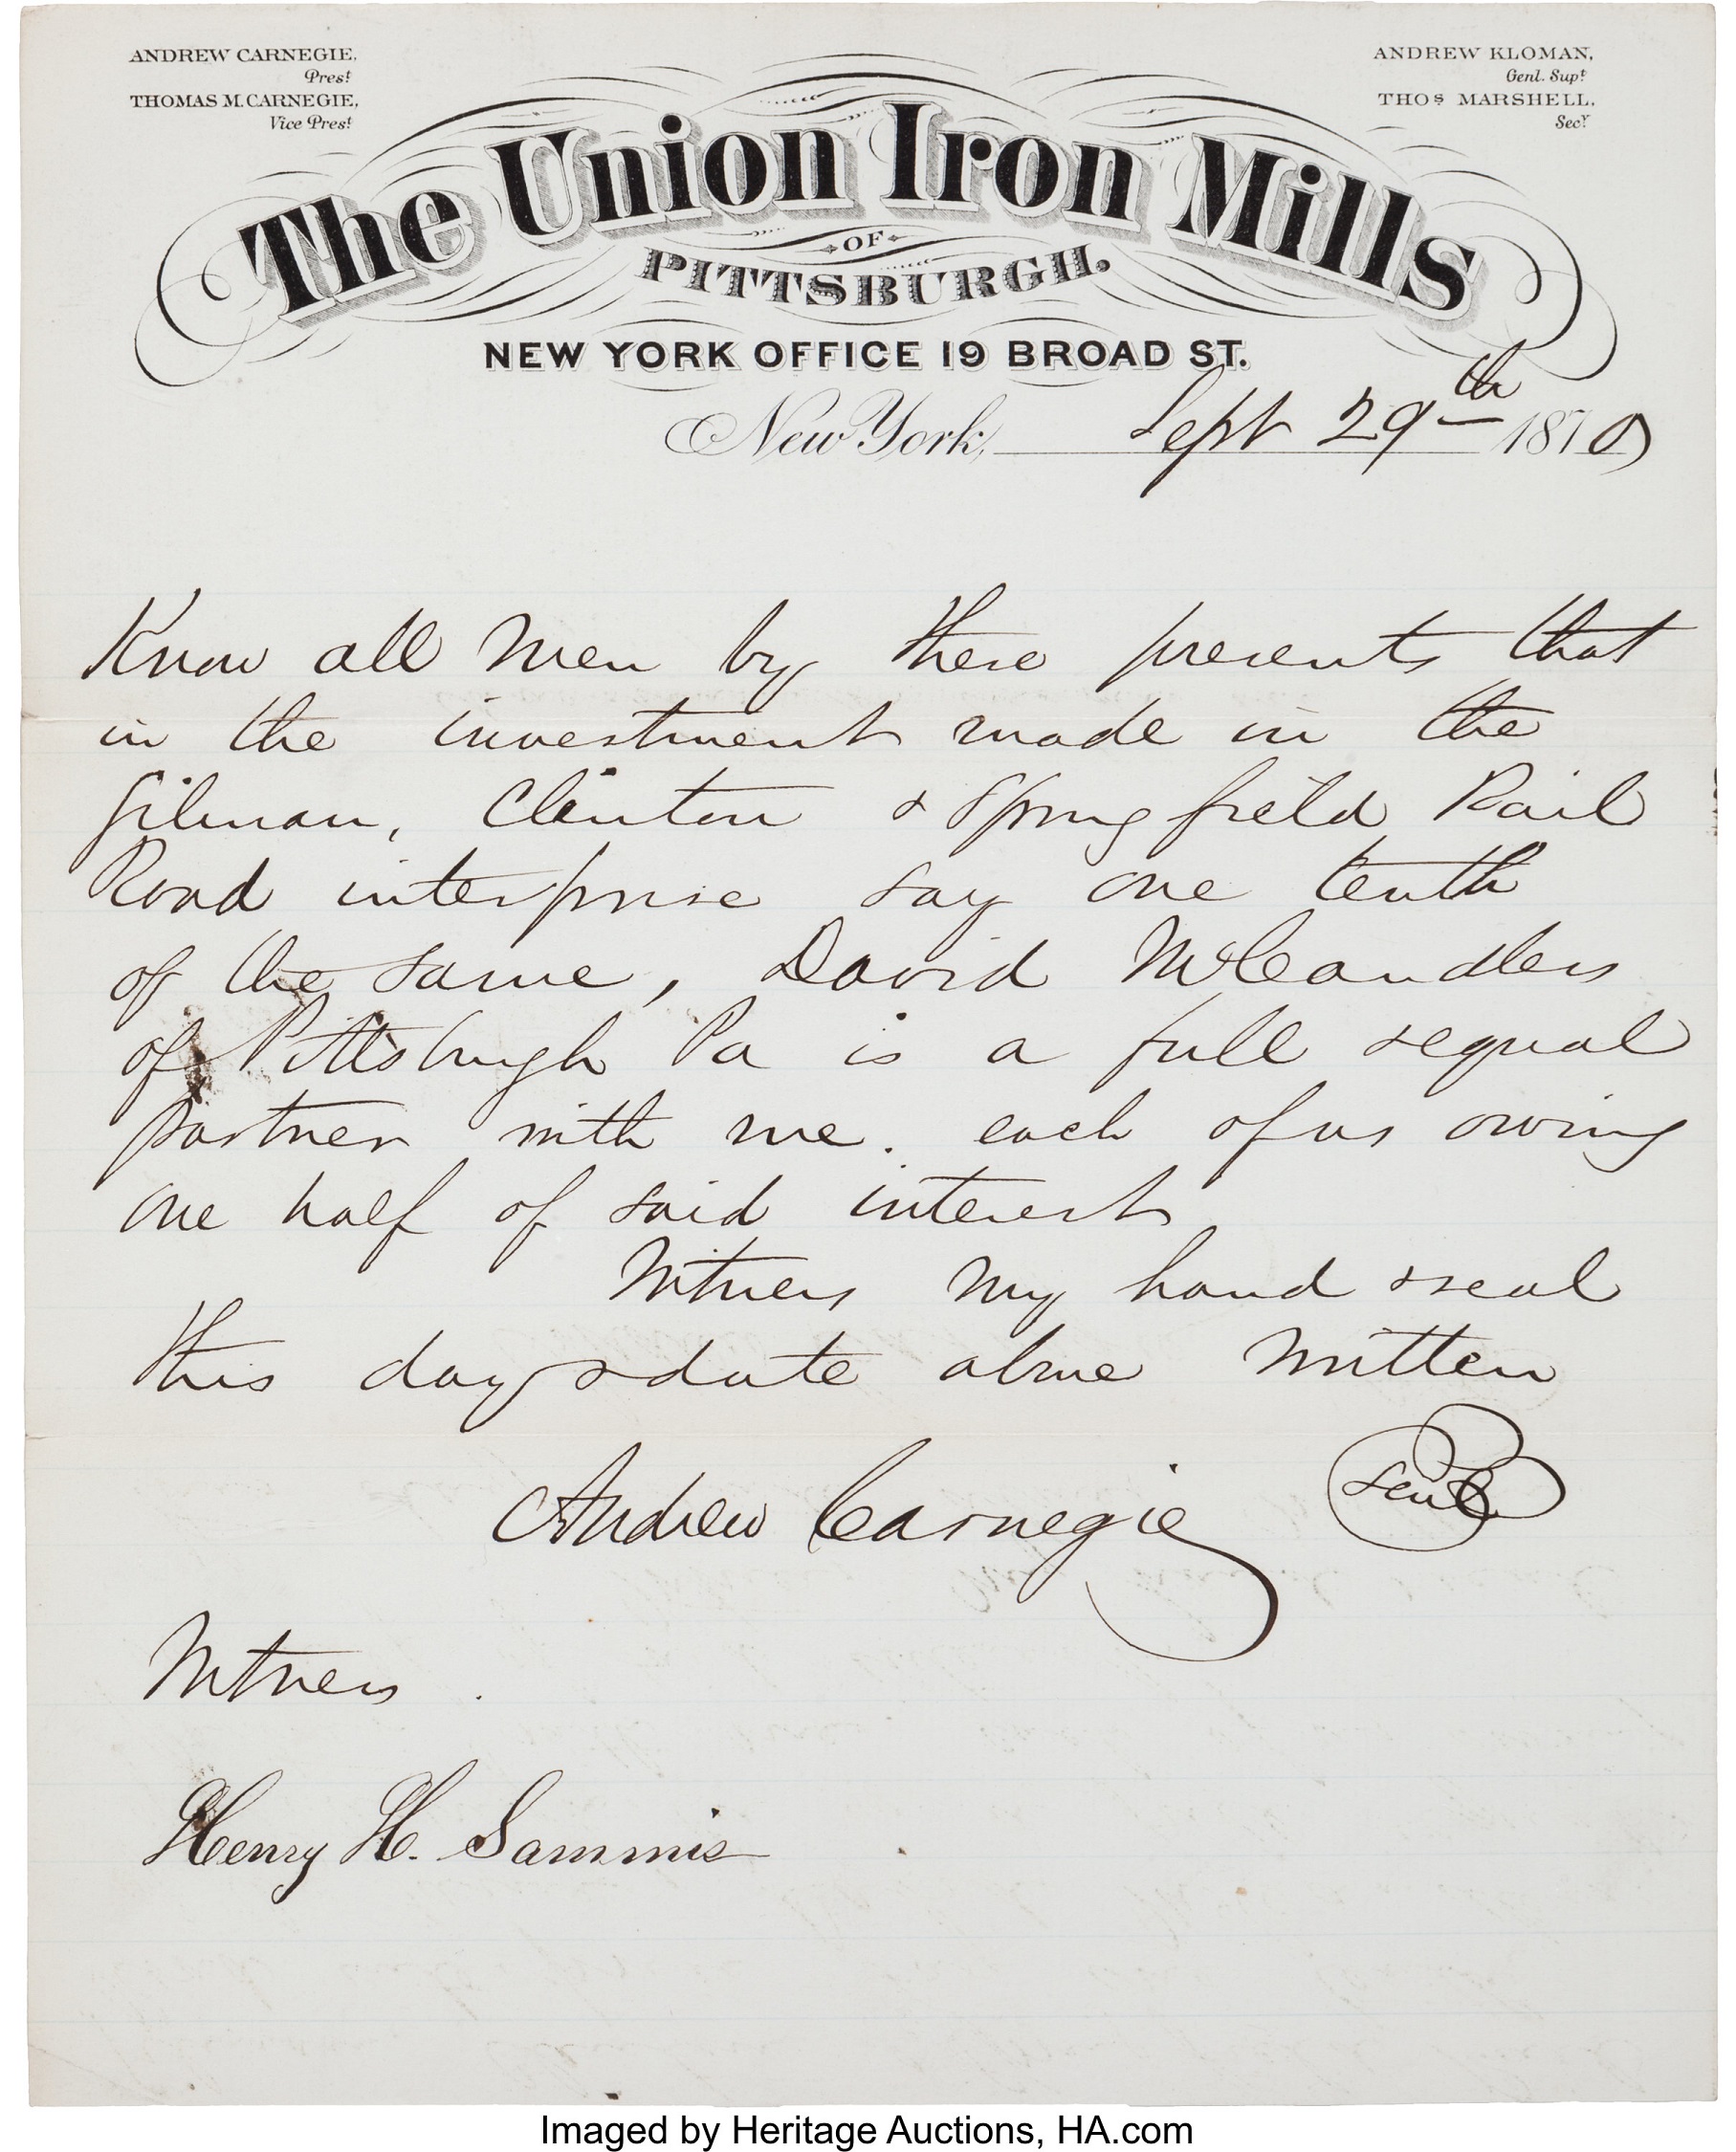 ANDREW CARNEGIE,
Prest
THOMAS M. CARNEGIE,
Vice Prest
ANDREW KLOMAN,
Genl. Supt
THOS MARSHELL,
Secy
The Union Iron Mills
OF
PITTSBURGH.
NEW YORK OFFICE 19 BROAD ST.
New York, Sept 29th 1870
Know all Men by these presents that
in the investment made in the
Gilman, Clinton & Springfield Rail
Road interprise say one tenth
of the same, David McCandless
of Pittsburgh Pa is a full & equal
partner with me. each of us owing
one half of said interest
Witness my hand & seal
this day & date above written
Andrew Carnegie seal
Witness.
Henry H. Sammis
Imaged by Heritage Auctions, HA.com